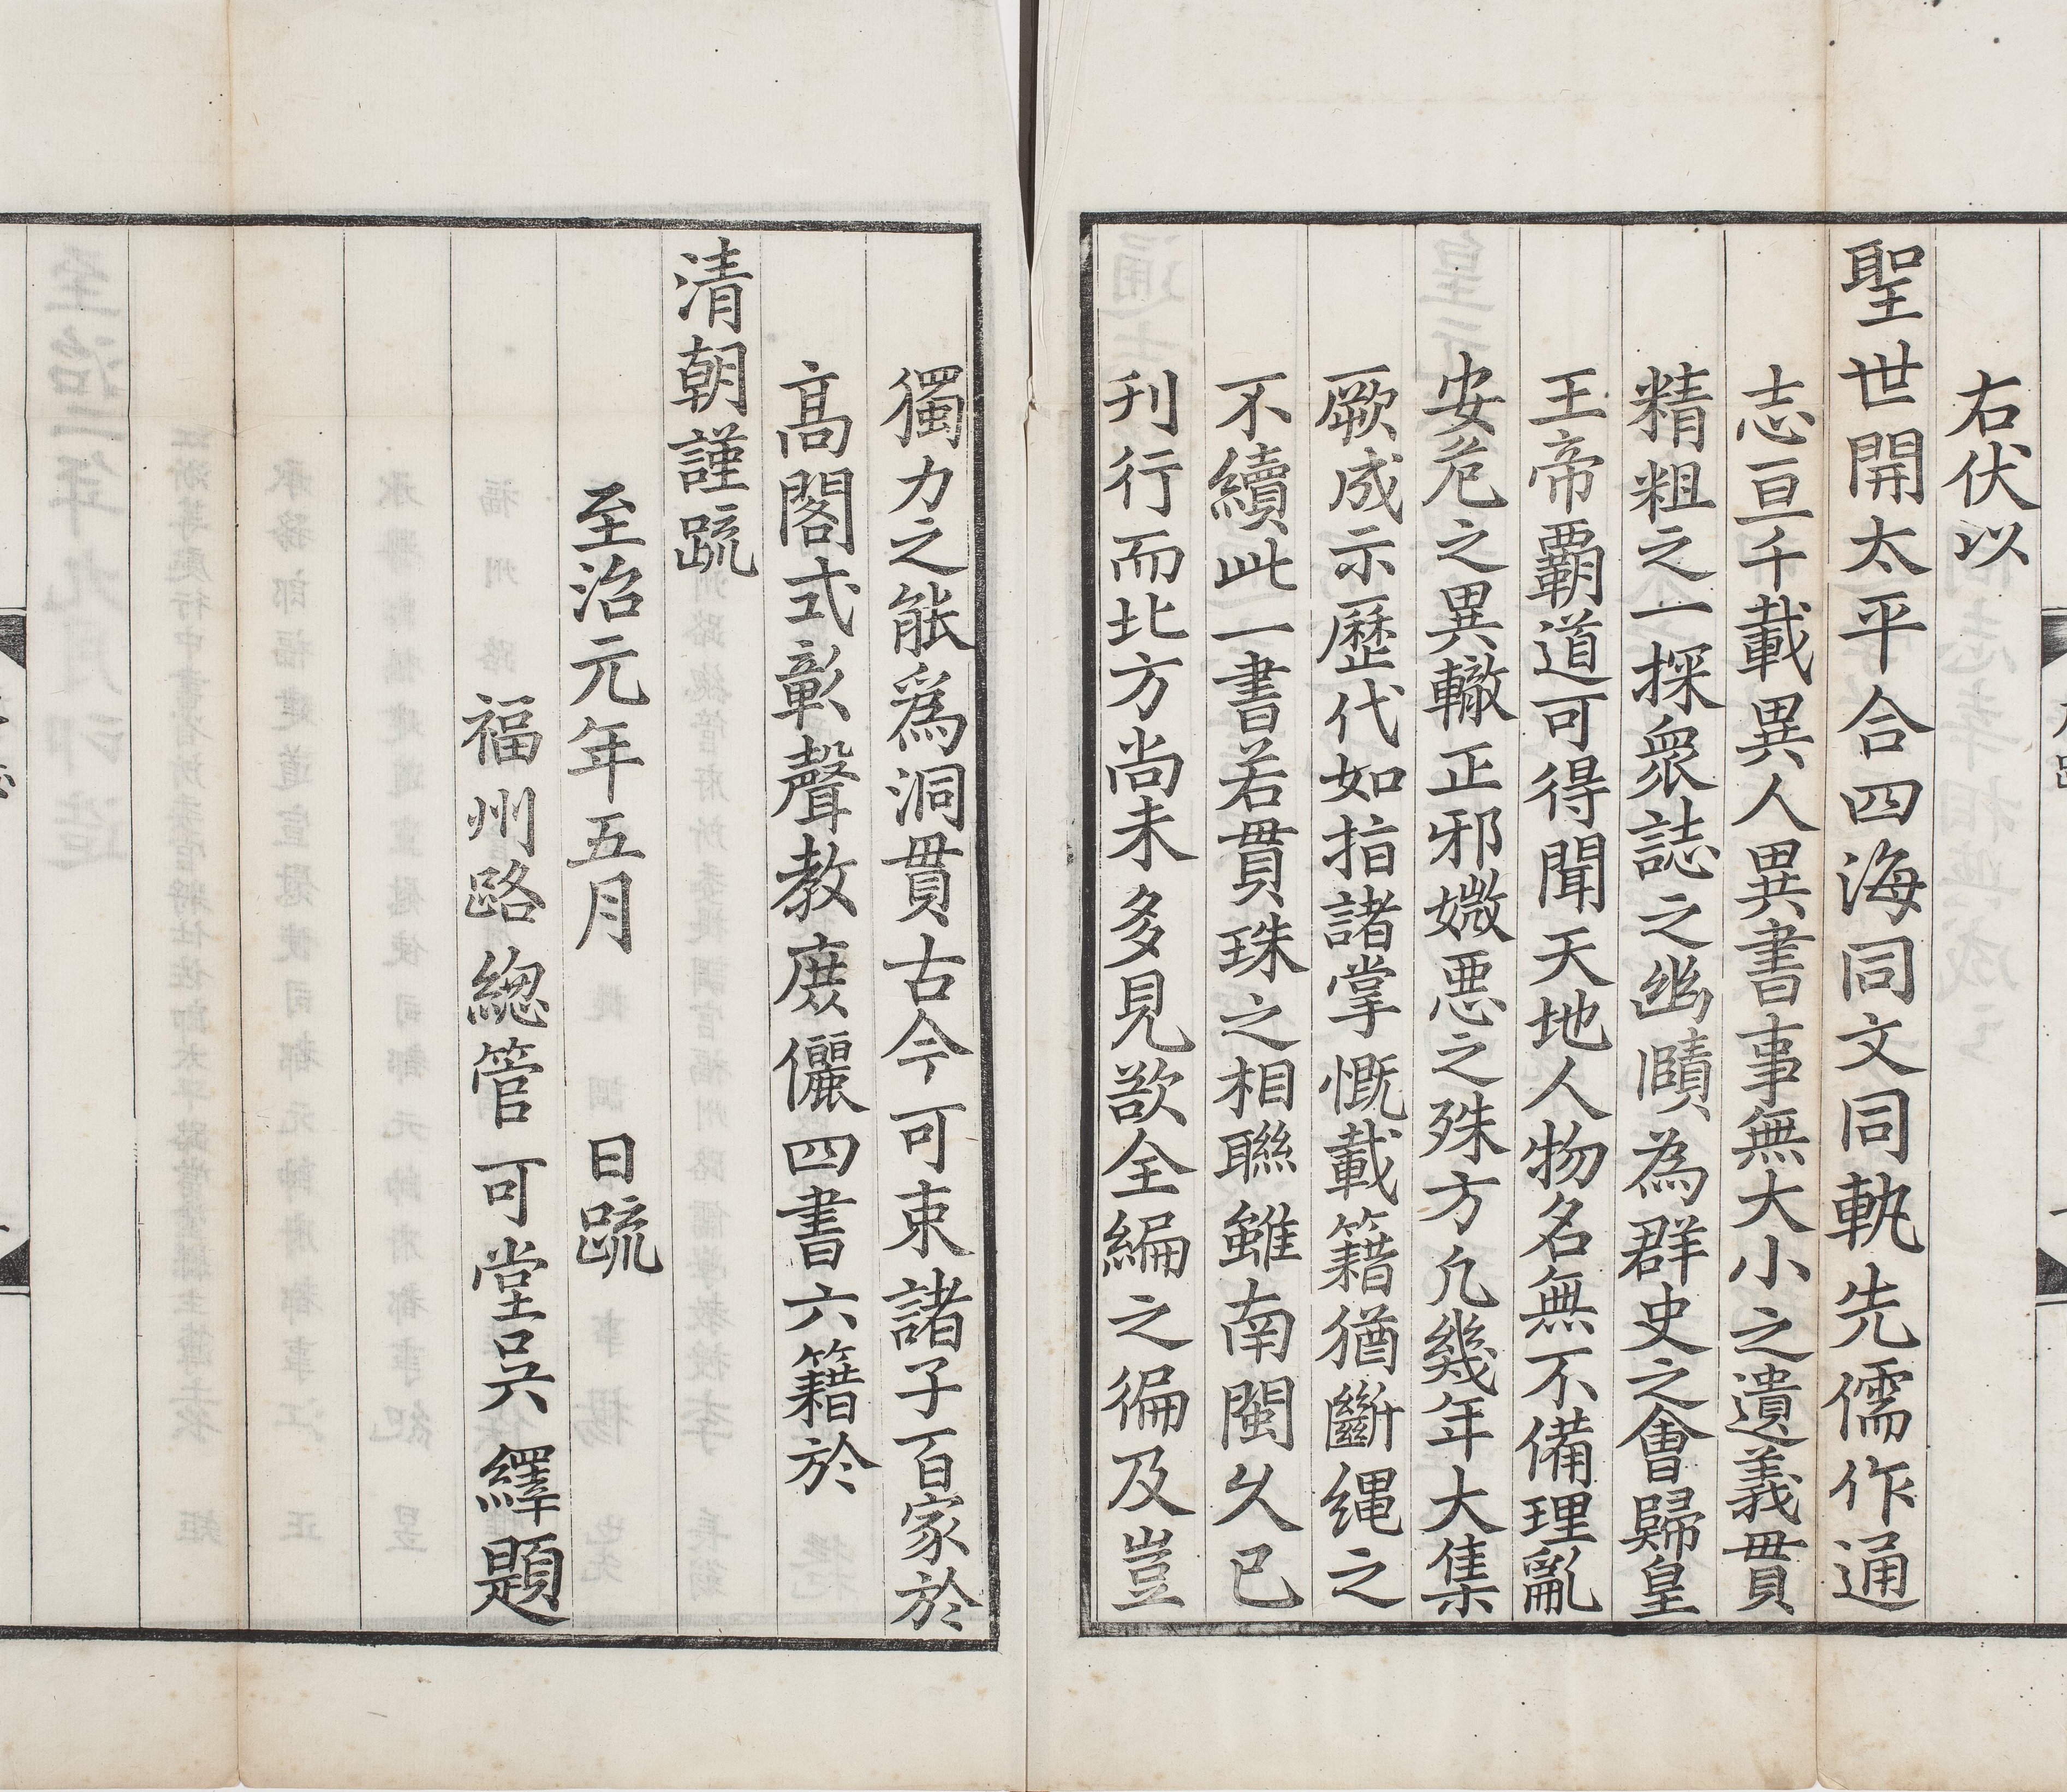 右伏以
聖世開太平合四海同文同軌先儒作通
志亘千載異人異書事無大小之遺義貫
精粗之一採衆誌之幽賾為群史之會歸皇
王帝覇道可得聞天地人物名無不備理亂
安危之異轍正邪媺悪之殊方凢幾年大集
厥成示歷代如指諸掌慨載籍猶斷繩之
不續此一書若貫珠之相聯雖南閩乆已
刊行而北方尚未多見欲全編之徧及豈
獨力之能爲洞貫古今可束諸子百家於
高閣式彰聲教庻儷四書六籍於
清朝謹疏
至治元年五月　日疏
福州路緫管可堂吳繹題